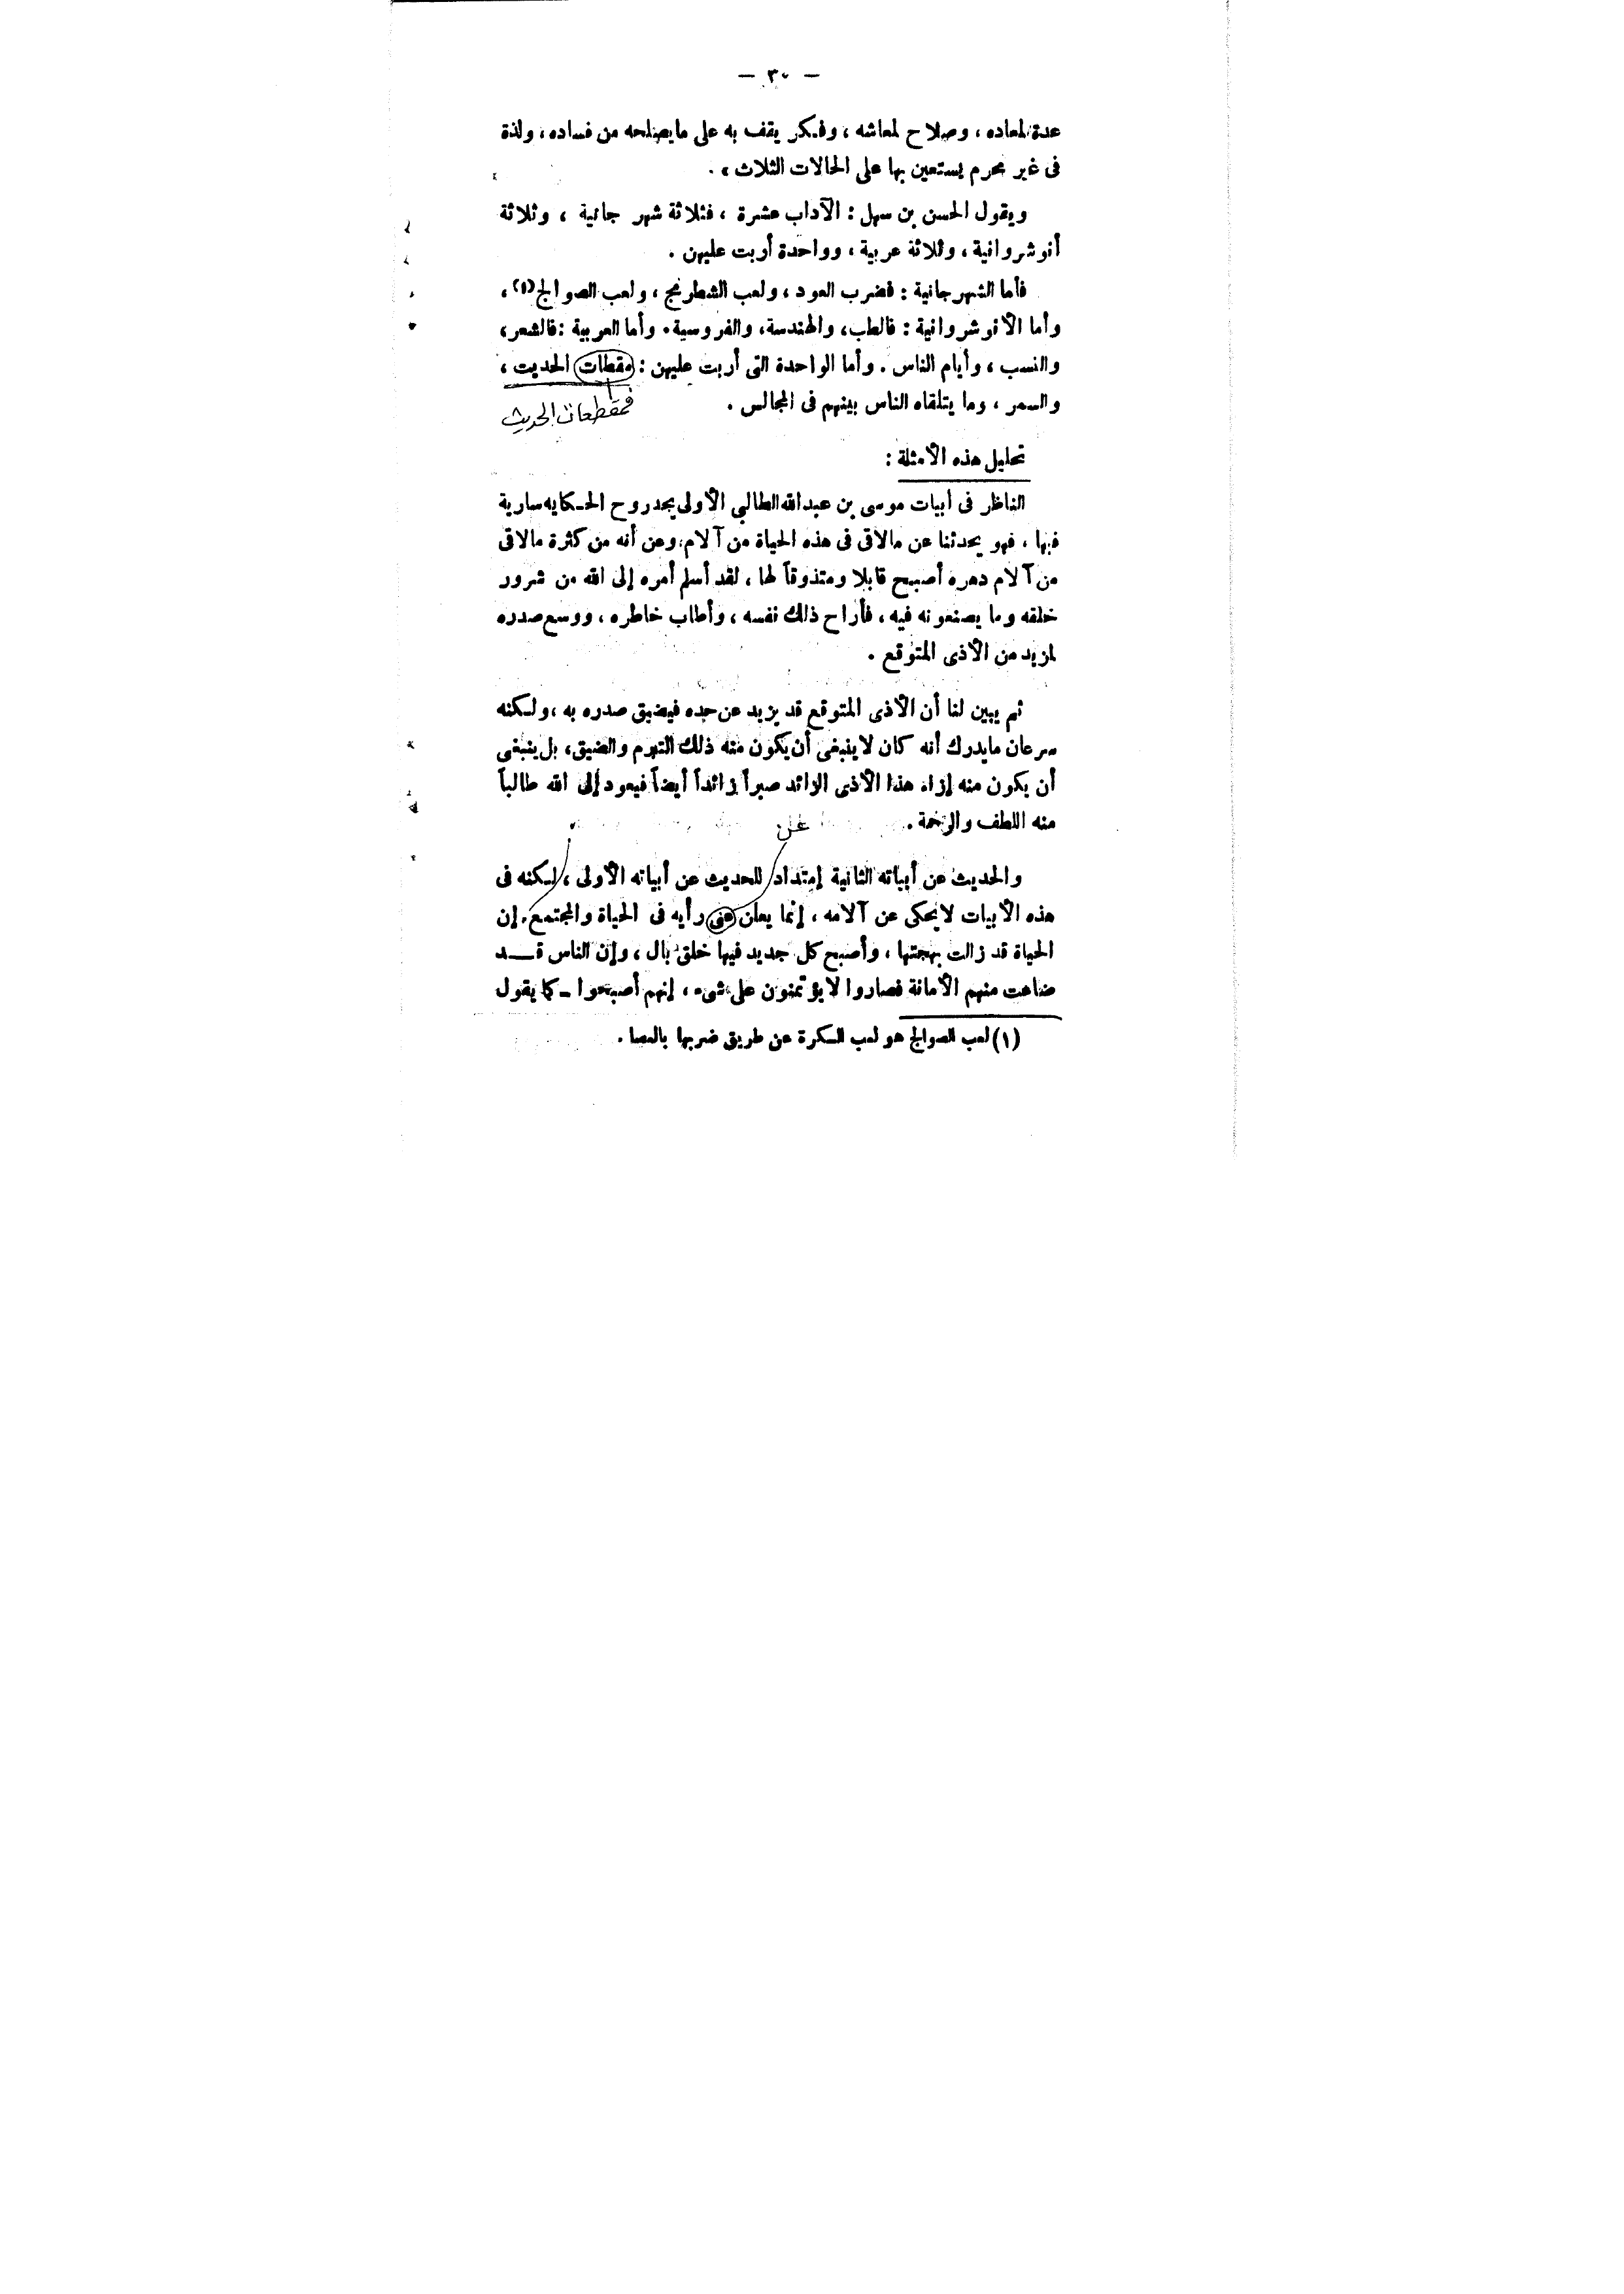 — ٣٠ —
عدة لمعاده ، وصلاح لمعاشه ، وفكر يقف به على ما يصلحه من فساده ، ولذة
فى غير محرم يستعين بها على الحالات الثلاث » .
ويقول الحسن بن سهل : الآداب عشرة ، فثلاثة شهر جانية ، وثلاثة
أنوشروانية ، وثلاثة عربية ، وواحدة أربت عليهن .
فأما الشهرجانية : فضرب العود ، ولعب الشطرنج ، ولعب الصوالج (١) ،
وأما الأنوشروانية : فالطب ، والهندسة ، والفروسية . وأما العربية : فالشعر ،
والنسب ، وأيام الناس . وأما الواحدة التى أربت عليهن : مقطات الحديت ،
والسمر ، وما يتلقاه الناس بينهم فى المجالس .
فمقطعات الحديث
تحليل هذه الأمثلة :
الناظر فى أبيات موسى بن عبد الله الطالبى الأولى يجد روح الحكايه سارية
فيها ، فهو يحدثنا عن مالاقى فى هذه الحياة من آلام ، وعن أنه من كثرة مالاقى
من آلام دهره أصبح قابلا ومتذوقاً لها ، لقد أسلم أمره إلى الله من شرور
خلقه وما يصنعونه فيه ، فأراح ذلك نفسه ، وأطاب خاطره ، ووسع صدره
لمزيد من الأذى المتوقع .
ثم يبين لنا أن الأذى المتوقع قد يزيد عن حده فيضيق صدره به ، ولكنه
سرعان مايدرك أنه كان لا ينبغى أن يكون منه ذلك التبرم والضيق ، بل ينبغى
أن يكون منه إزاء هذا الأذى الزائد صبراً زائداً أيضاً فيعود إلى الله طالباً
منه اللطف والرحمة .
عن
والحديث عن أبياته الثانية إمتداد للحديث عن أبياته الأولى ، لكنه فى
هذه الأبيات لا يحكى عن آلامه ، إنما يعلن عى رأيه فى الحياة والمجتمع . إن
الحياة قد زالت بهجتها ، وأصبح كل جديد فيها خلق بال ، وإن الناس قد
ضاعت منهم الأمانة فصاروا لا يؤتمنون على شىء ، إنهم أصبحوا – كما يقول
(١) لعب الصوالج هو لعب الكرة عن طريق ضربها بالعصا .